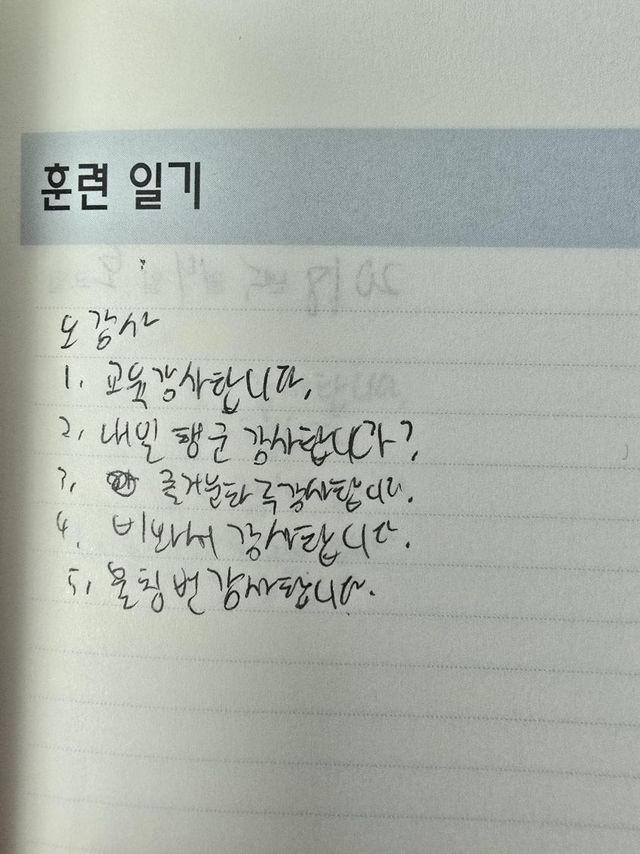 훈련 일기
오감사
1. 교육감사합니다.
2. 내일 행군 감사합니다?
3. 즐거운하루감사합니다.
4. 비와서 감사합니다.
5. 불침번 감사합니다.